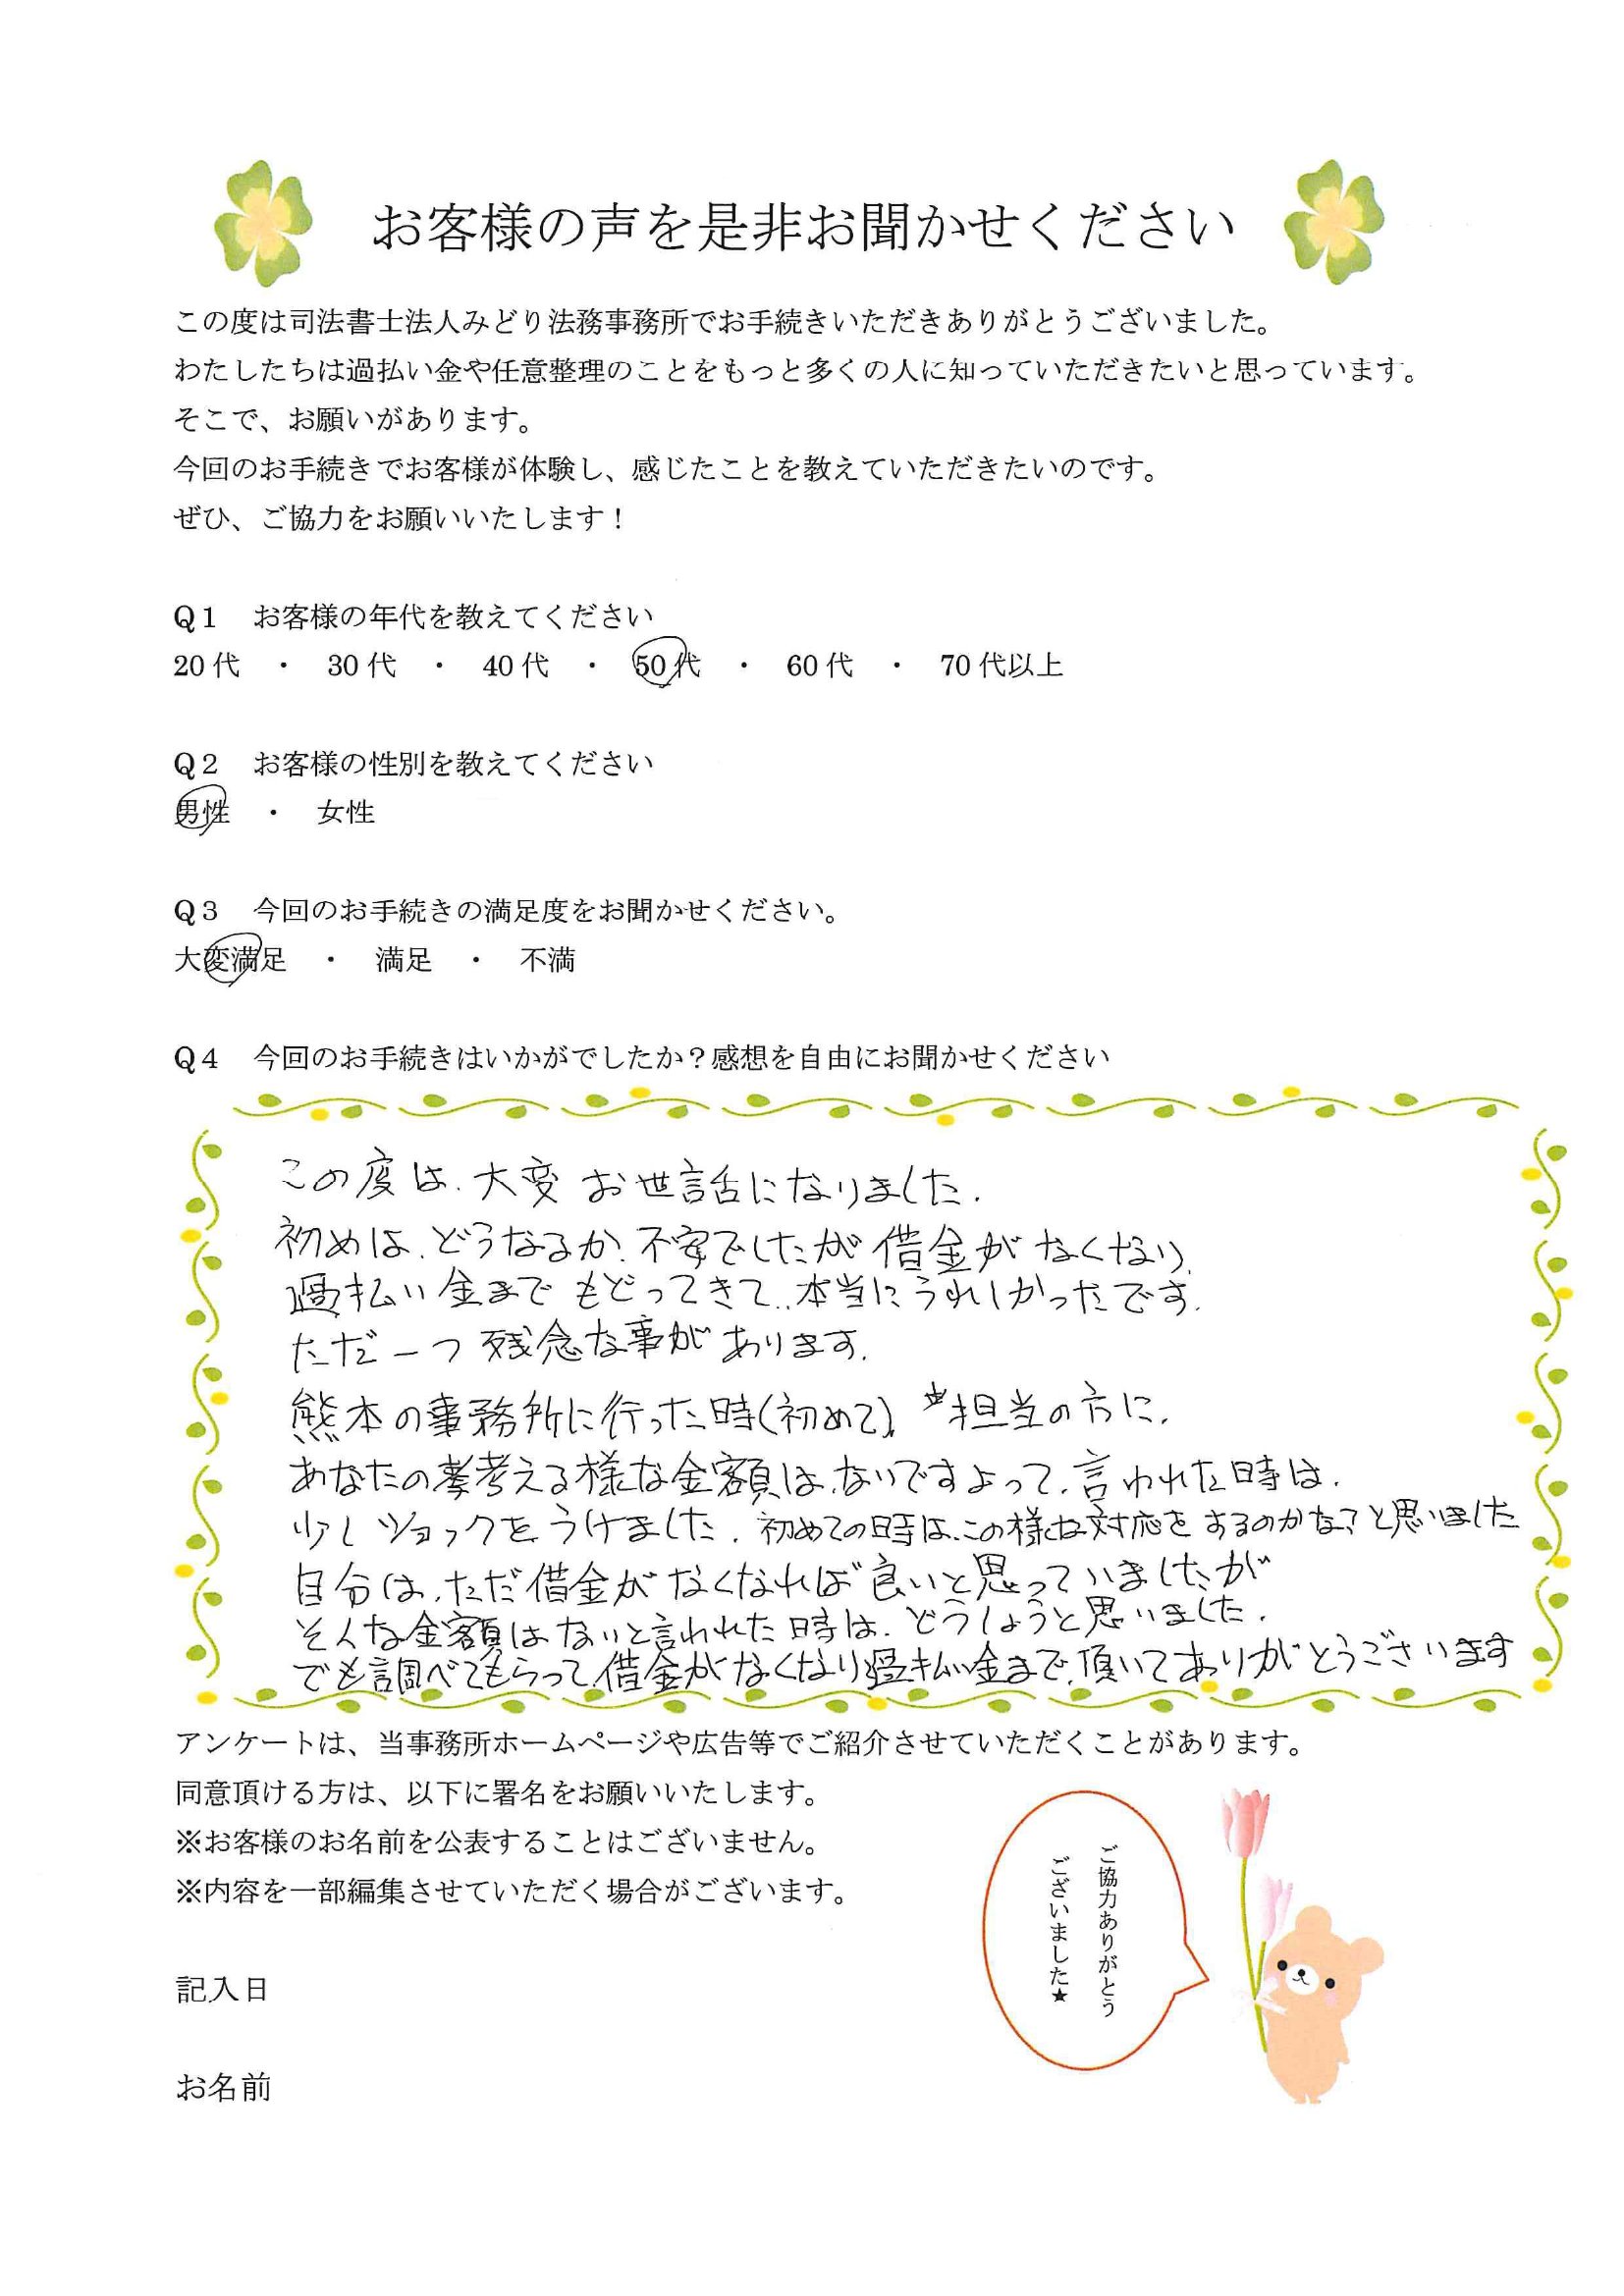 お客様の声を是非お聞かせください
この度は司法書士法人みどり法務事務所でお手続きいただきありがとうございました。
わたしたちは過払い金や任意整理のことをもっと多くの人に知っていただきたいと思っています。
そこで、お願いがあります。
今回のお手続きでお客様が体験し、感じたことを教えていただきたいのです。
ぜひ、ご協力をお願いいたします！
Q１　お客様の年代を教えてください
20代　・　30代　・　40代　・　50代　・　60代　・　70代以上
Q２　お客様の性別を教えてください
男性　・　女性
Q３　今回のお手続きの満足度をお聞かせください。
大変満足　・　満足　・　不満
Q４　今回のお手続きはいかがでしたか？感想を自由にお聞かせください
この度は、大変お世話になりました.
初めは、どうなるか、不安でしたが借金がなくなり、
過払い金までもどってきて、本当にうれしかったです.
ただ一つ残念な事があります.
熊本の事務所に行った時(初めて)、担当の方に、
あなたの考える様な金額は、ないですよって、言われた時は、
少しショックをうけました. 初めての時は、この様な対応をするのかな?と思いました
自分は、ただ借金がなくなれば良いと思っていましたが
そんな金額はないと言われた時は、どうしょうと思いました.
でも調べてもらって、借金がなくなり過払い金まで、頂いてありがとうございます
アンケートは、当事務所ホームページや広告等でご紹介させていただくことがあります。
同意頂ける方は、以下に署名をお願いいたします。
※お客様のお名前を公表することはございません。
※内容を一部編集させていただく場合がございます。
ご協力ありがとう
ございました★
記入日
お名前